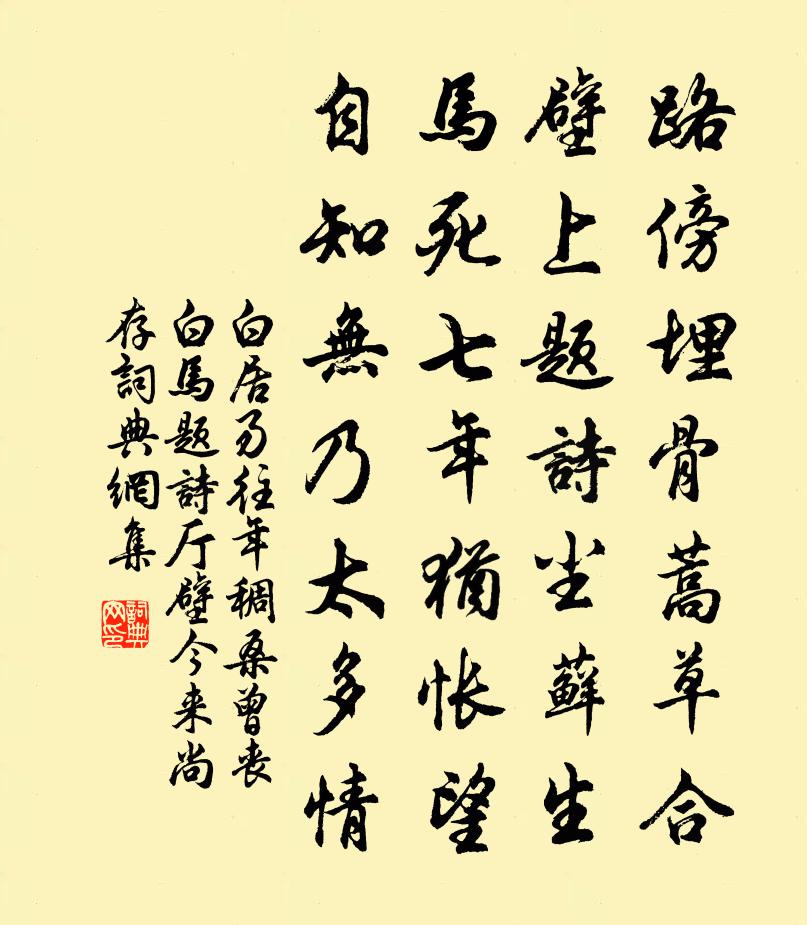 路傍埋骨蒿草合
壁上題詩尘蘚生
馬死七年猶悵望
自知無乃太多情
白居易往年稠桑曾丧
白馬题詩厅壁今来尚
存詞典網集
詞典网印